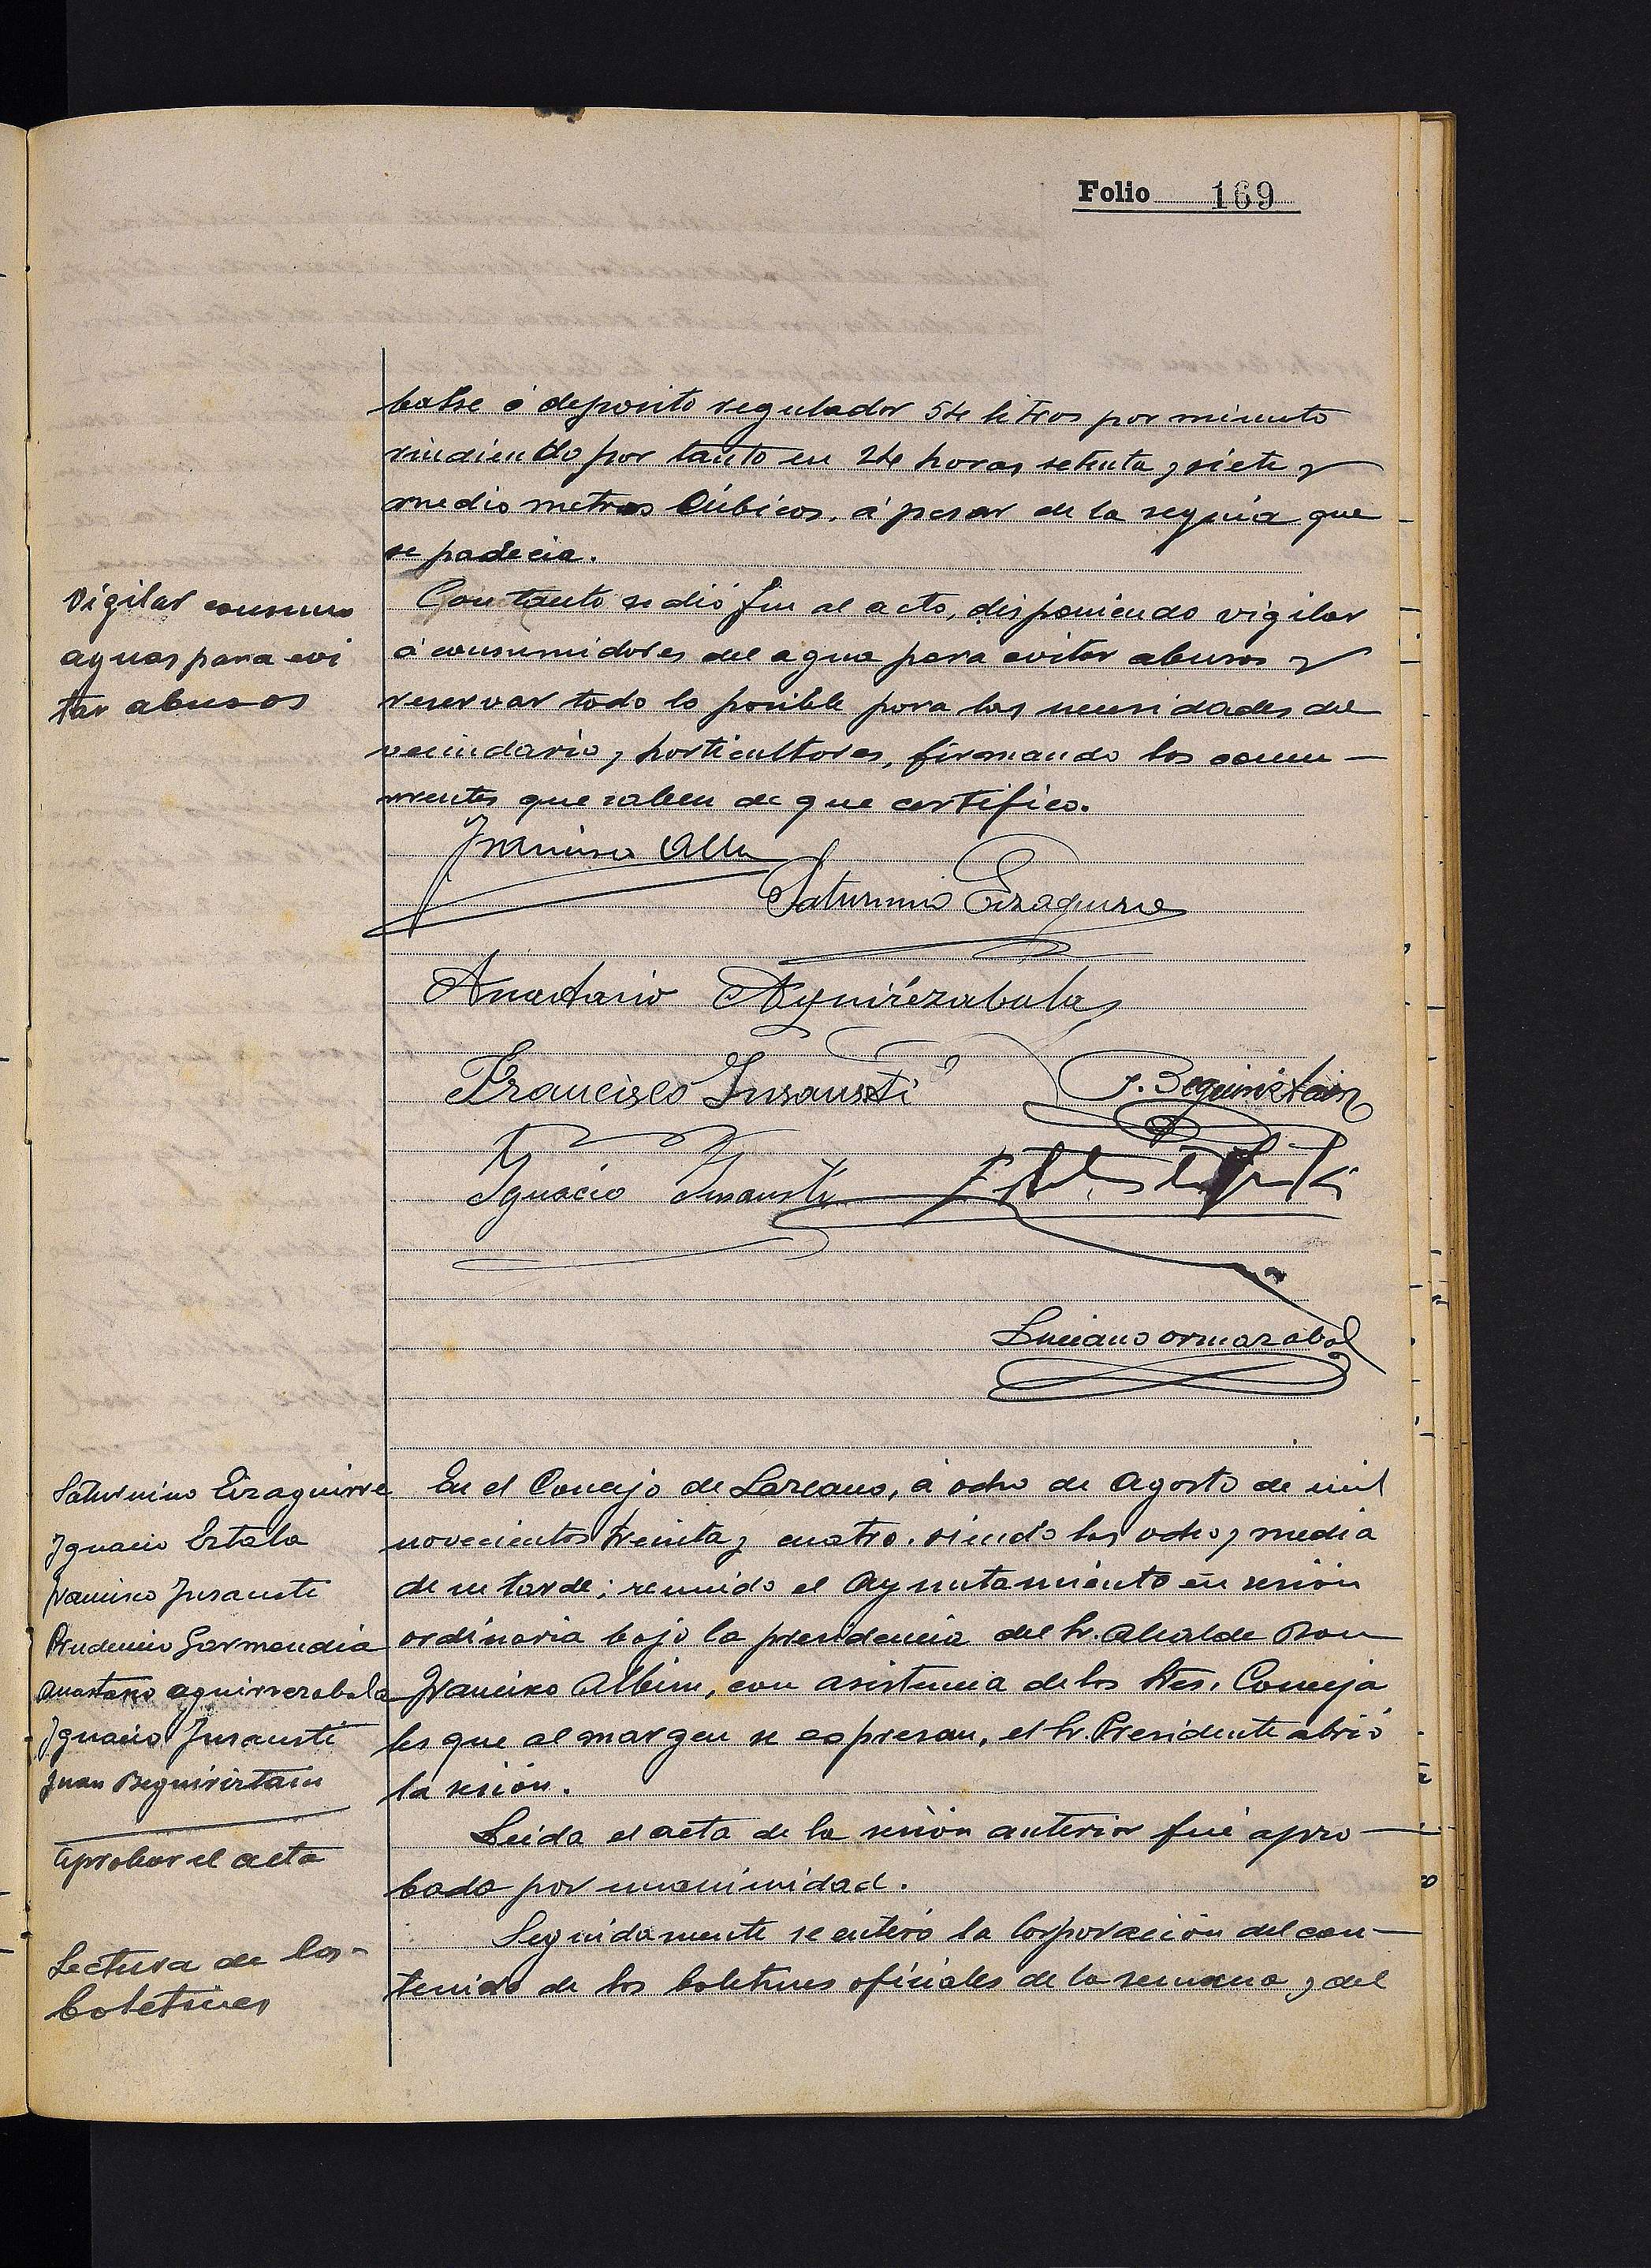 Folio 169
balse ó deposito regulador 54 litros por minuto
rindiendo por tanto en 24 horas setenta y siete y
medio metros cúbicos, á pesar de la sequia que
se padecia.
Vigilar consumo
aguas para evi
tar abusos
Con tanto se dió fin al acto, disponiendo vigilar
á consumidores del agua para evitar abusos y
reservar todo lo posible para las necesidades del
vecindario y horticultores, firmando los concu-
rrentes que saben de que certifico.
Francisco Albi
Saturnino Eizaguirre
Anastasio Aguirrezabala
Francisco Insausti
J. Beguiristain
Ignacio Insausti
Luciano Ormazabal
Saturnino Eizaguirre
Ignacio Estala
Francisco Insausti
Prudencio Garmendia
Anastasio Aguirrezabala
Ignacio Insausti
Juan Beguiristain
En el Concejo de Lazcano, á ocho de Agosto de mil
novecientos treinta y cuatro, siendo las ocho y media
de su tarde; reunido el Ayuntamiento en sesión
ordinaria bajo la presidencia del Sr. Alcalde Don
Francisco Albisu, con asistencia de los Sres. Conceja
les que al margen se expresan, el Sr. Presidente abrió
la sesión.
Aprobar el acta
Leida el acta de la sesión anterior fué apro-
bada por unanimidad.
Lectura de los
boletines
Seguidamente se enteró la Corporación del con-
tenido de los boletines oficiales de la semana y del